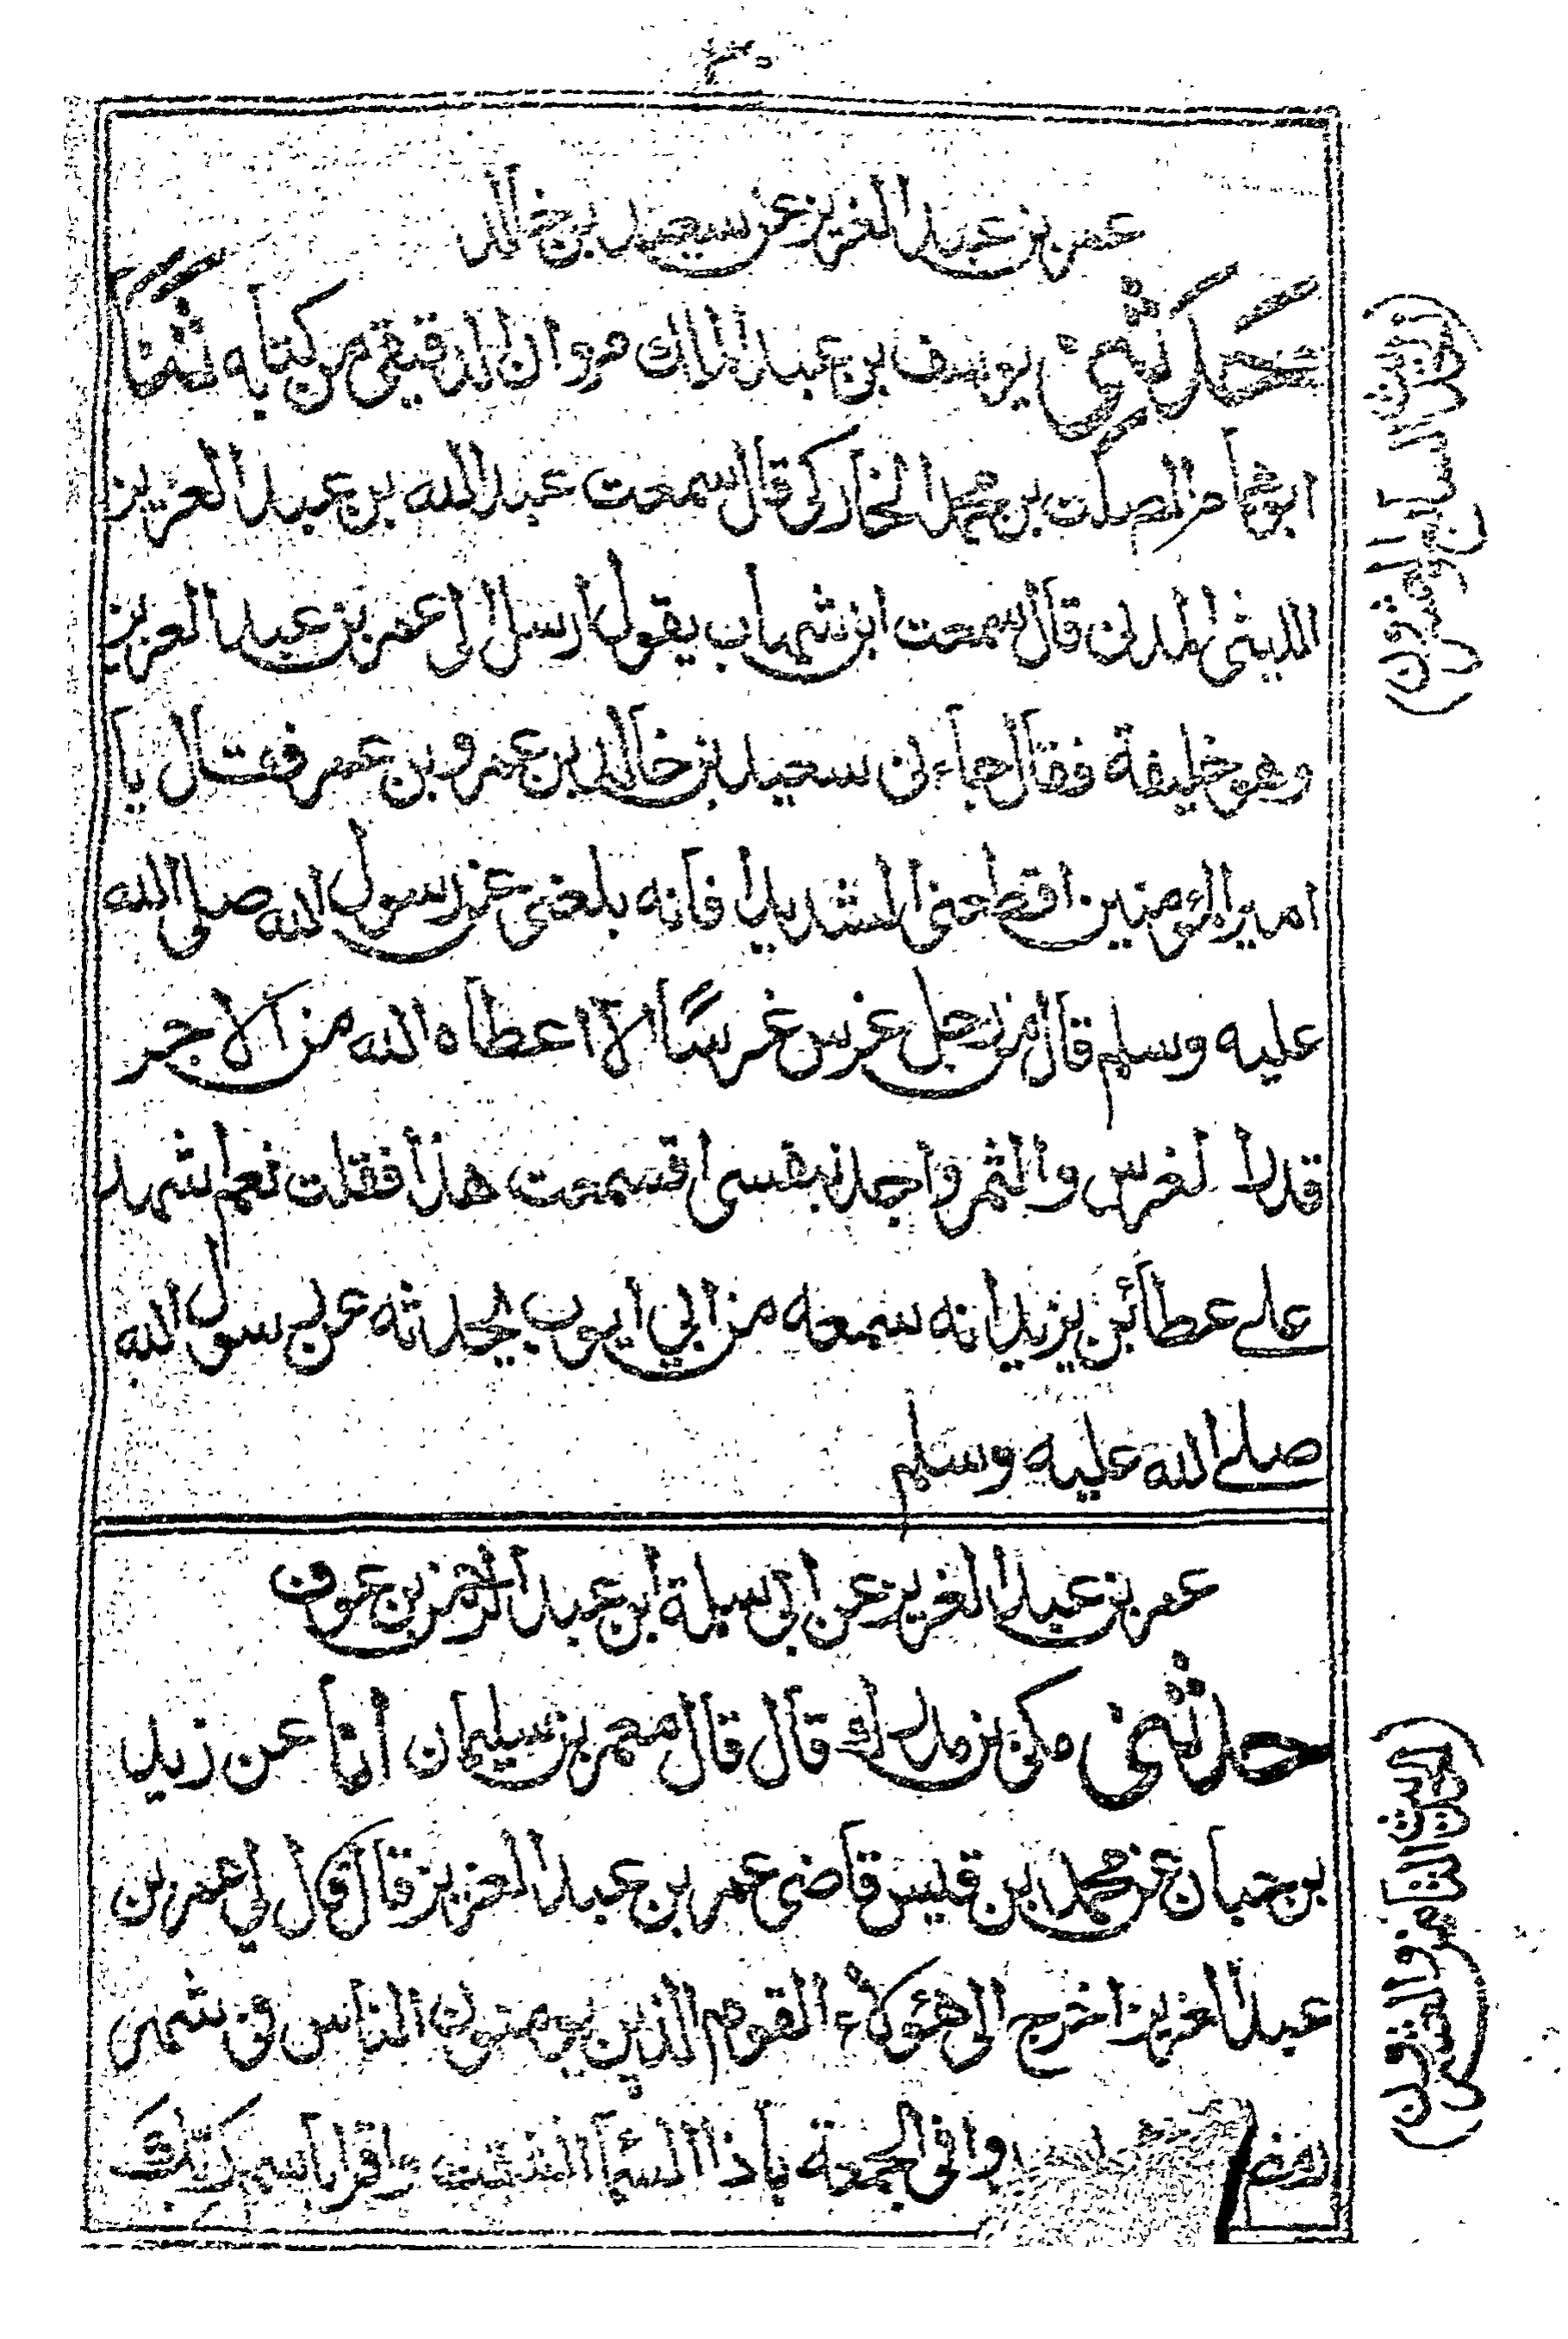 ٣٠
عمر بن عبد العزيز عن سعيد بن خالد
حدثني يوسف بن عبد الملك مروان الدقيقي من كتابه ثنا
ابو همام الصلت بن محمد الخاركي قال سمعت عبد الله بن عبد العزيز
الليثي المدني قال سمعت ابن شهاب يقول ارسل الى عمر بن عبد العزيز
وهو خليفة فقال جاءني سعيد بن خالد بن عمرو بن عمر فقال يا
امير المومنين اقطعني الشديد فانه بلغني عن رسول الله صلى الله
عليه وسلم قال من رجل غرس غرسا الا اعطاه الله من الاجر
قد لا لغرس والثمر واجد نفسي اقسمعت هذا فقلت نعم اشهد
على عطائ بن يزيد انه سمعه من ابي ايوب يحدثه عن رسول الله
صلى الله عليه وسلم
عمر بن عبد العزيز عن ابي سلمة ابن عبد الرحمن بن عوف
حدثني مكي بن قال قال معمر بن سليمان انا عن زيد
بن حبان عن محمد ابن قيس قاضى عمر بن عبد العزيز قال قال لي عمر بن
عبد العزيز اخرج الى هؤلاء القوم الذين يومنون الناس في شهر
رمض وافى الجمعة باذا السماء انشقت واقرا باسم ربك
(الحديث السابع والعشرون)
(الحديث الثامن والعشرون)